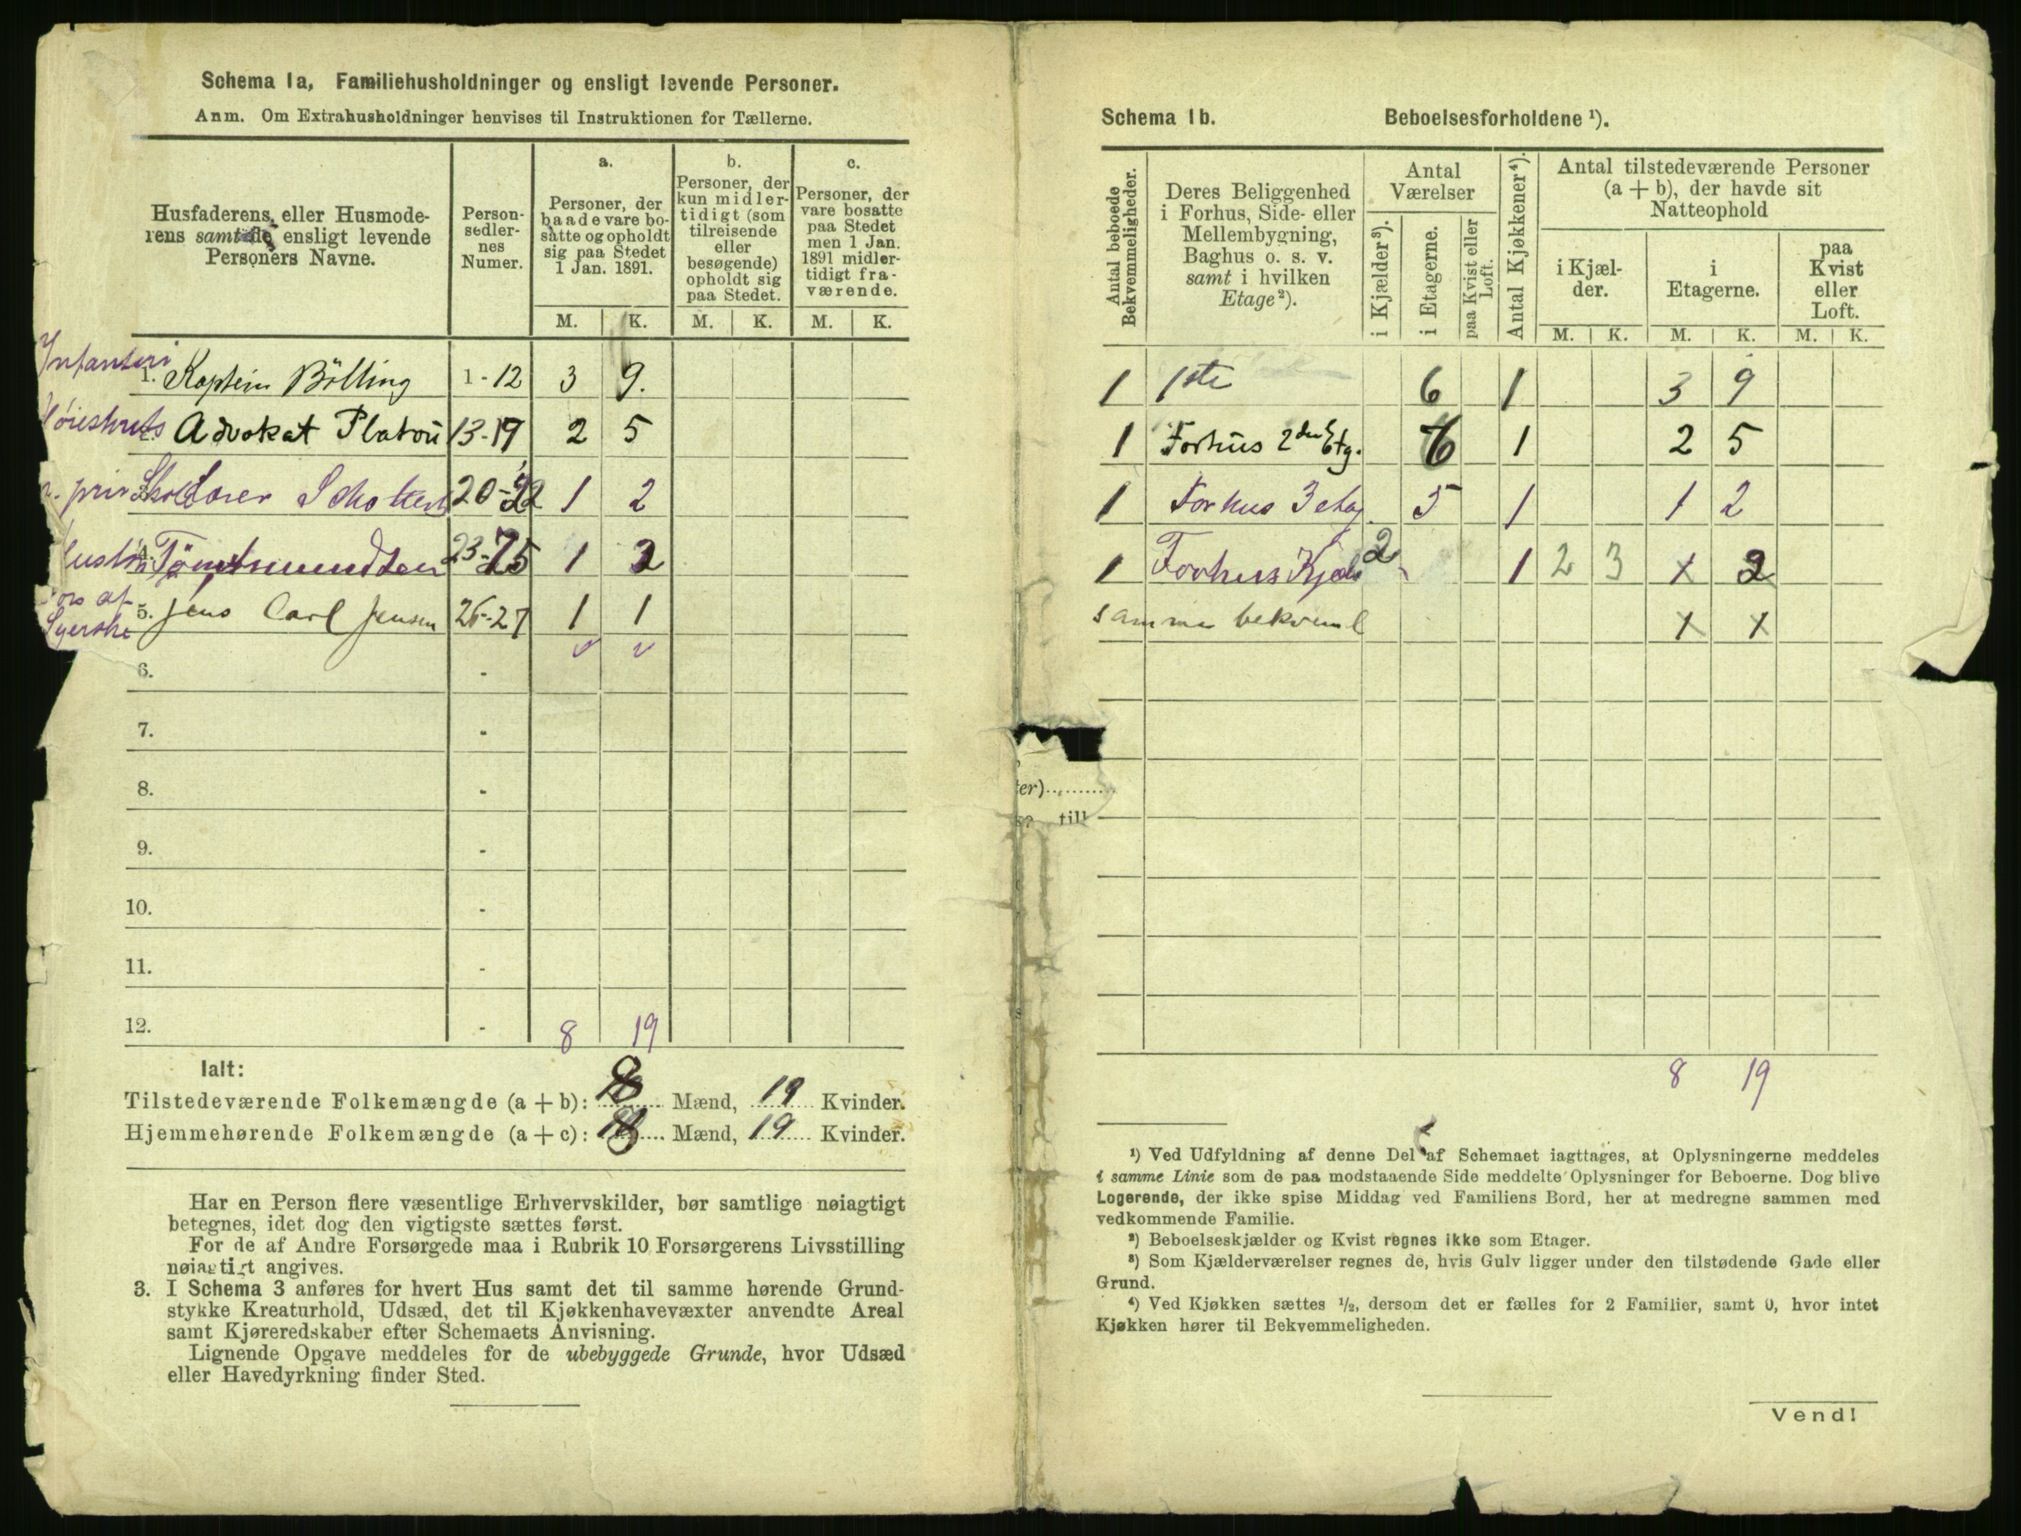 Schema 1a, Familiehusholdninger og ensligt levende Personer.
Anm. Om Extrahusholdninger henvises til Instruktionen for Tællerne.
Husfaderens, eller Husmode-
rens samt de ensligt levende
Personers Navne.
Person-
sedler-
nes
Numer.
a.
Personer, der
baade vare bo-
satte og opholdt
sig paa Stedet
1 Jan. 1891.
b.
Personer, der
kun midler-
tidigt (som
tilreisende
eller
besøgende)
opholdt sig
paa Stedet.
c.
Personer, der
vare bosatte
paa Stedet
men 1 Jan.
1891 midler-
tidigt fra-
værende.
M. K. M. K. M. K.
Infanteri
1. Kaptein Bölling 1-12 3 9.
Advokat Platou 13-19 2 5
priv 20-22 1 2
23-25 1 3
5. Jens Carl Jensen 26-27 1 1
Syerske
6. -
7. -
8. -
9. -
10. -
11. -
12. - 8 19
Ialt:
Tilstedeværende Folkemængde (a + b): 8 Mænd, 19 Kvinder.
Hjemmehørende Folkemængde (a + c): 8 Mænd, 19 Kvinder.
Har en Person flere væsentlige Erhvervskilder, bør samtlige nøiagtigt
betegnes, idet dog den vigtigste sættes først.
For de af Andre Forsørgede maa i Rubrik 10 Forsørgerens Livsstilling
nøiagtigt angives.
3. I Schema 3 anføres for hvert Hus samt det til samme hørende Grund-
stykke Kreaturhold, Udsæd, det til Kjøkkenhavevæxter anvendte Areal
samt Kjøreredskaber efter Schemaets Anvisning.
Lignende Opgave meddeles for de ubebyggede Grunde, hvor Udsæd
eller Havedyrkning finder Sted.
ter)..........
till
Schema 1b. Beboelsesforholdene ¹).
Antal beboede
Bekvemmeligheder.
Deres Beliggenhed
i Forhus, Side- eller
Mellembygning,
Baghus o. s. v.
samt i hvilken
Etage ²).
Antal
Værelser
i Kjælder ³).
i Etagerne.
paa Kvist eller
Loft.
Antal Kjøkkener ⁴).
Antal tilstedeværende Personer
(a + b), der havde sit
Natteophold
i Kjæl-
der.
i
Etagerne.
paa
Kvist
eller
Loft.
M. K. M. K. M. K.
1 1ste 6 1 3 9
1 Forhus 2den Etg. 6 1 2 5
1 Forhus 3 etag. 5 1 1 2
1 Forhus Kjæl 2 1 2 3 1 2
samme bekveml 1 1
8 19
¹) Ved Udfyldning af denne Del af Schemaet iagttages, at Oplysningerne meddeles
i samme Linie som de paa modstaaende Side meddelte Oplysninger for Beboerne. Dog blive
Logerende, der ikke spise Middag ved Familiens Bord, her at medregne sammen med
vedkommende Familie.
²) Beboelseskjælder og Kvist regnes ikke som Etager.
³) Som Kjælderværelser regnes de, hvis Gulv ligger under den tilstødende Gade eller
Grund.
⁴) Ved Kjøkken sættes ½, dersom det er fælles for 2 Familier, samt 0, hvor intet
Kjøkken hører til Bekvemmeligheden.
Vend!